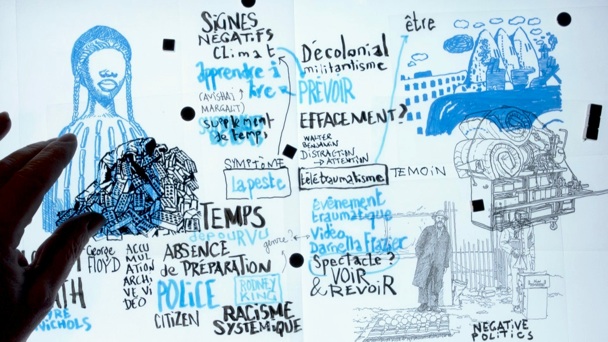 SIGNES
NÉGATIFS
CLimat
apprendre à
lire
(AVISHAI
MARGALIT)
supplément
de temps
SYMPTÔME
La peste
TEMPS
dépourvu
George
FLOYD
ACCU
MUL
ATION
ARCHI
VE VI
DÉO
ABSENCE
de PRÉPARATION
POLICE
CITIZEN
RODNEY
KING
RACISME
SYSTÉMIQUE
NICHOLS
être
Décolonial
militantisme
PRÉVOIR
EFFACEMENT?
WALTER
BENJAMIN
DISTRACTION
→ ATTENTION
télétraumatisme
TEMOIN
événement
traumatique
Vidéo
Darnella Frazier
genre?
Spectacle?
VOIR
& REVOIR
NEGATIVE
POLITICS